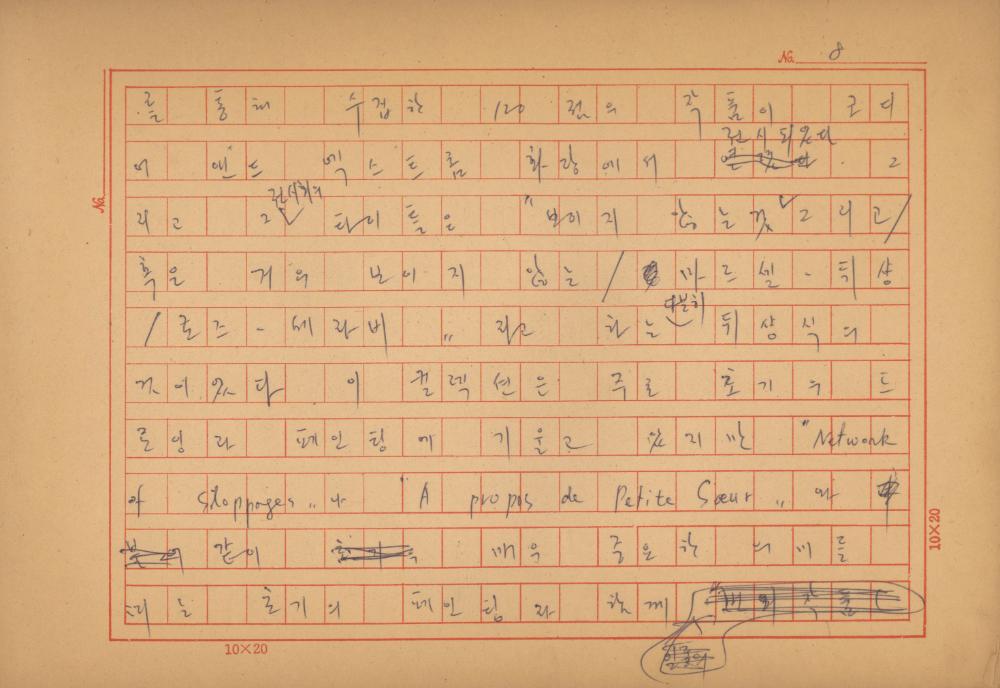 No. 8
를 통해 수집한 120 점의 작품이 코디
전시되었다
어 앤드 엑스트롬 화랑에서 . 그
전시회의
리고 그 타이틀은 "보이지 않는 것 그리고/
혹은 거의 보이지 않는 / 마르셀 - 뒤샹
다분히
/ 로즈 - 세라비 „ 라고 하는 뒤샹식의
것이었다 이 컬렉션은 주로 초기의 드
로잉과 페인팅에 기울고 있지만 "Network
of Stoppages „ 나 "A propos de Petite Sœur „ 와
같이 매우 중요한 의미를
초기의 페인팅과 함께
No.
10×20
10×20